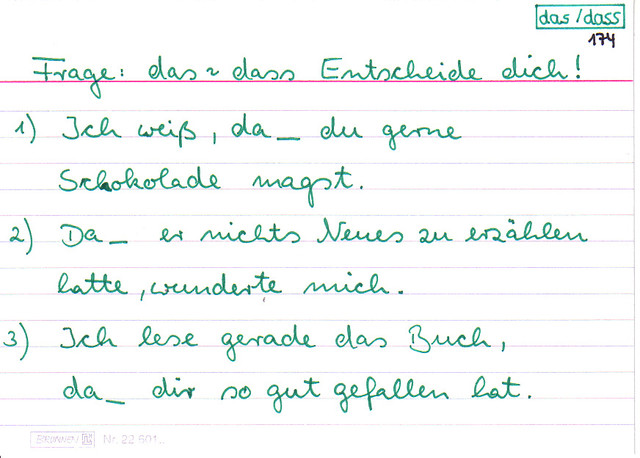 das/dass
174
Frage: das ~ dass Entscheide dich!
1) Ich weiß, da_ du gerne
Schokolade magst.
2) Da_ er nichts Neues zu erzählen
hatte, wunderte mich.
3) Ich lese gerade das Buch,
da_ dir so gut gefallen hat.
BRUNNEN Nr. 22 601